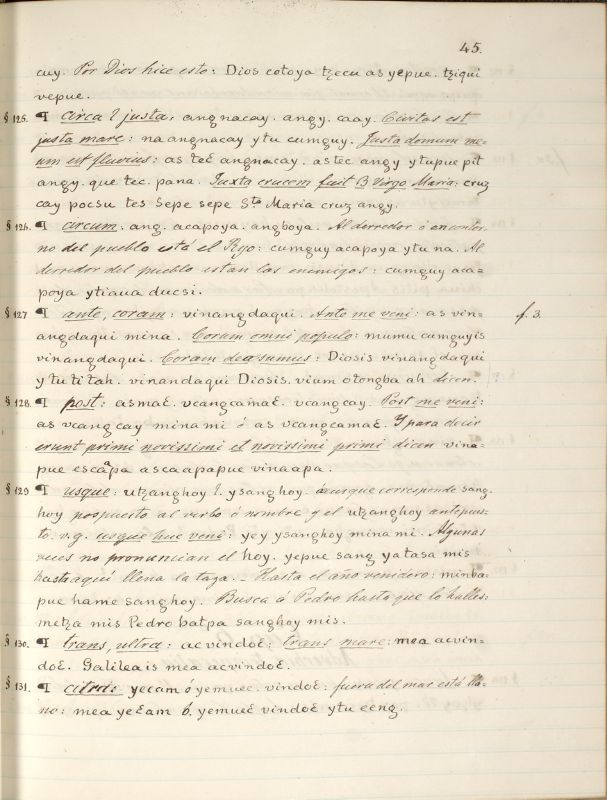 45.
cuy. Por Dios hice esto: Dios cotoya tzecu as yepue. tziqui
vepue.
§ 125. ¶ Circa l justa: angnacay. angy. caay. Civitas est
justa mare: na angnacay ytu cumguy. Justa domum me=
um est fluvius: as tec angnacay. as tec angy ytupue pit
angy. que tec. pana. Juxta crucem fuit B Virgo Maria: cruz
cay pocsu tes Sepe sepe Sta Maria cruz angy.
§ 126. ¶ circum: ang. acapoya. angboya. Al derredor ó en contor.
no del pueblo está el Rijo: cumguy acapoya ytu na. Al
derredor del pueblo estan los enemigos: cumguy aca=
poya ytiaua ducsi.
§ 127 ¶ ante, coram: vinangdaqui. Ante me veni: as vin= f. 3
angdaqui mina. Coram omni populo: mumu cumguyis
vinangdaqui. Coram dea sumus: Diosis vinangdaqui
y tu ti tah. vinandaqui Diosis. vium otongba ah dicen.
§ 128. ¶ post: as maℰ. vcangcamaℰ. vcangcay. Post me veni:
as vcangcay mina mi ó as vcangcamaℰ. Y para decir
erunt primi novissimi et novissimi primi dicen vina=
pue escaapa ascaapapue vinaapa.
§ 129 ¶ usque: utzanghoy l. ysanghoy. á usque corresponde sang.
hoy pospuesto al verbo ó nombre y el utzanghoy antepues=
to. v.g. usque huc veni: yey ysanghoy mina mi. Algunas
veces no pronuncian el hoy. yepue sang yatasa mis
hasta aqui llena la taza. – Hasta el año venidero: minba
pue hame sanghoy. Busca á Pedro hasta que lo halles:
metza mis Pedro batpa sanghoy mis.
§ 130. ¶ trans, ultra: acvindoℰ: trans mare: mea acvin=
doℰ. Galileais mea acvindoℰ.
§ 131. ¶ citra: yecam ó yemueℰ. vindoℰ: fuera del mar está lla=
no: mea yeℰam ó. yemueℰ vindoℰ ytu ceng.